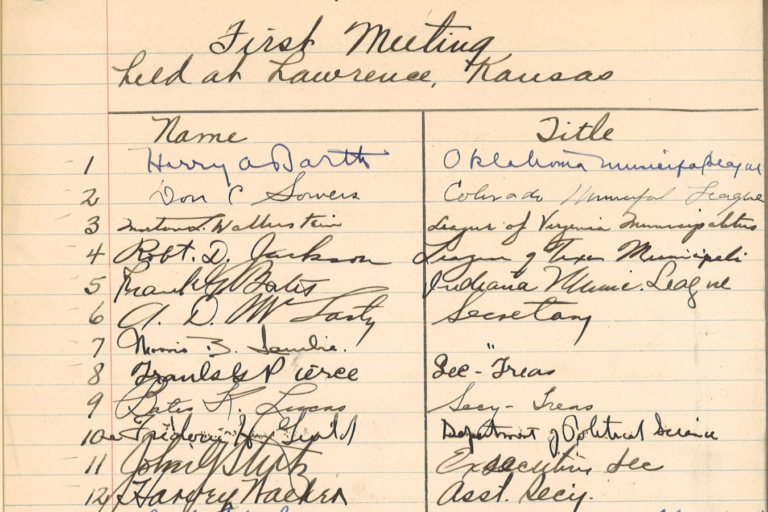 First Meeting
held at Lawrence, Kansas
Name Title
1 Harry A Barth Oklahoma Municipal League
2 Don C Sowers Colorado Municipal League
3 Morton L. Wallerstein League of Virginia Municipalities
4 Robt. D. Jackson League of Texas Municipali
5 Frank G Bates Indiana Munic. League
6 A. D. Mc Larty Secretary
7 Morris B. Lambie. "
8 Pierce Sec-Treas
9 K. Secy-Treas
10 Department of Political Science
11 John G Stutz Executive Sec
12 Harvey Walker Asst. Secy.